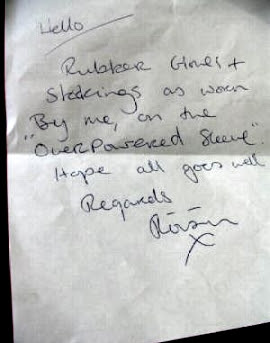 Hello
Rubber Gloves +
Stockings as worn
"By me, on the
OverPowered Sleeve".
Hope all goes well
Regards
Róisín
X